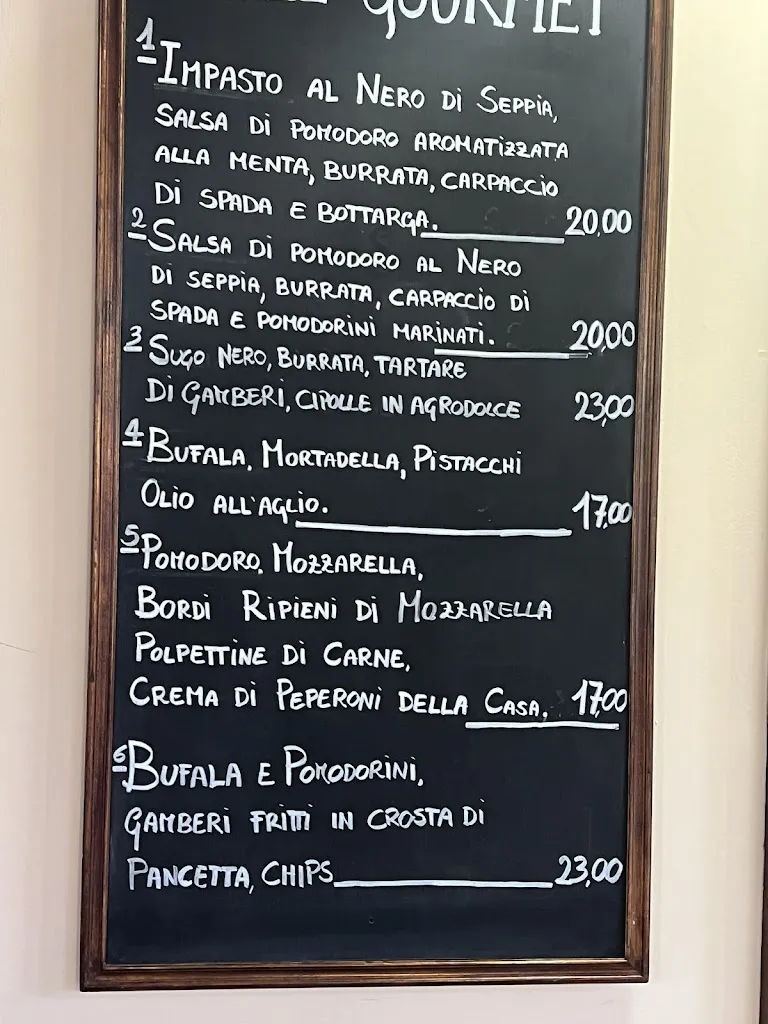 GOURMET
1 IMPASTO AL NERO DI SEPPIA,
SALSA DI POMODORO AROMATIZZATA
ALLA MENTA, BURRATA, CARPACCIO
DI SPADA E BOTTARGA. 20,00
2 SALSA DI POMODORO AL NERO
DI SEPPIA, BURRATA, CARPACCIO DI
SPADA E POMODORINI MARINATI. 20,00
3 SUGO NERO, BURRATA, TARTARE
DI GAMBERI, CIPOLLE IN AGRODOLCE 23,00
4 BUFALA, MORTADELLA, PISTACCHI
OLIO ALL'AGLIO. 17,00
5 POMODORO, MOZZARELLA,
BORDI RIPIENI DI MOZZARELLA
POLPETTINE DI CARNE,
CREMA DI PEPERONI DELLA CASA. 17,00
6 BUFALA E POMODORINI,
GAMBERI FRITTI IN CROSTA DI
PANCETTA, CHIPS 23,00